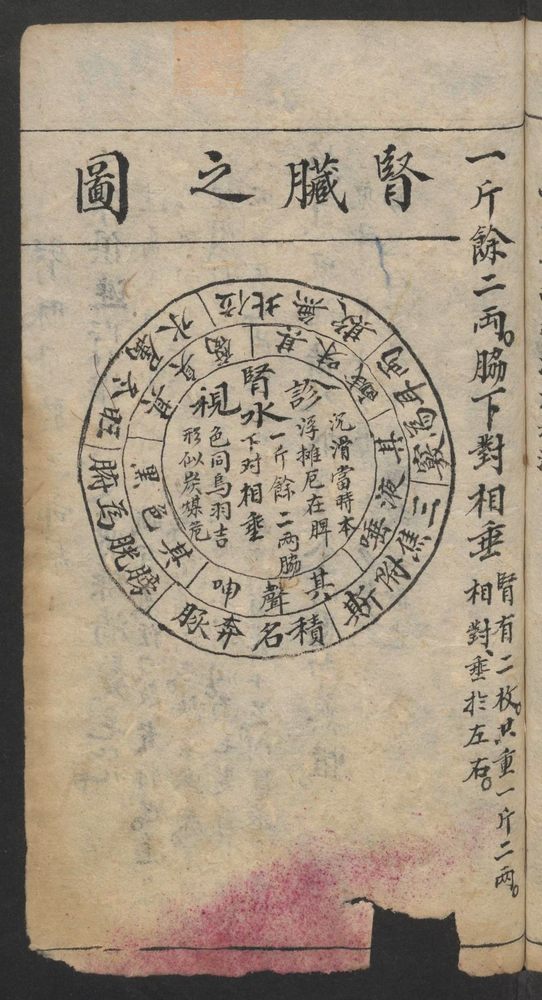 一斤餘二兩。脇下對相垂
腎有二枚。共重一斤二兩。
相對、垂於左右。
腎臟之圖
診
沉滑當時本
浮摊厄在脾
腎水
一斤餘二兩脇
下对相垂
視
色同烏羽吉
形似炭煤危
其液唾
其聲呻
其色黑
其味鹹
竅為耳
三焦附斯
積名奔豚
膀胱為腑
水
北位